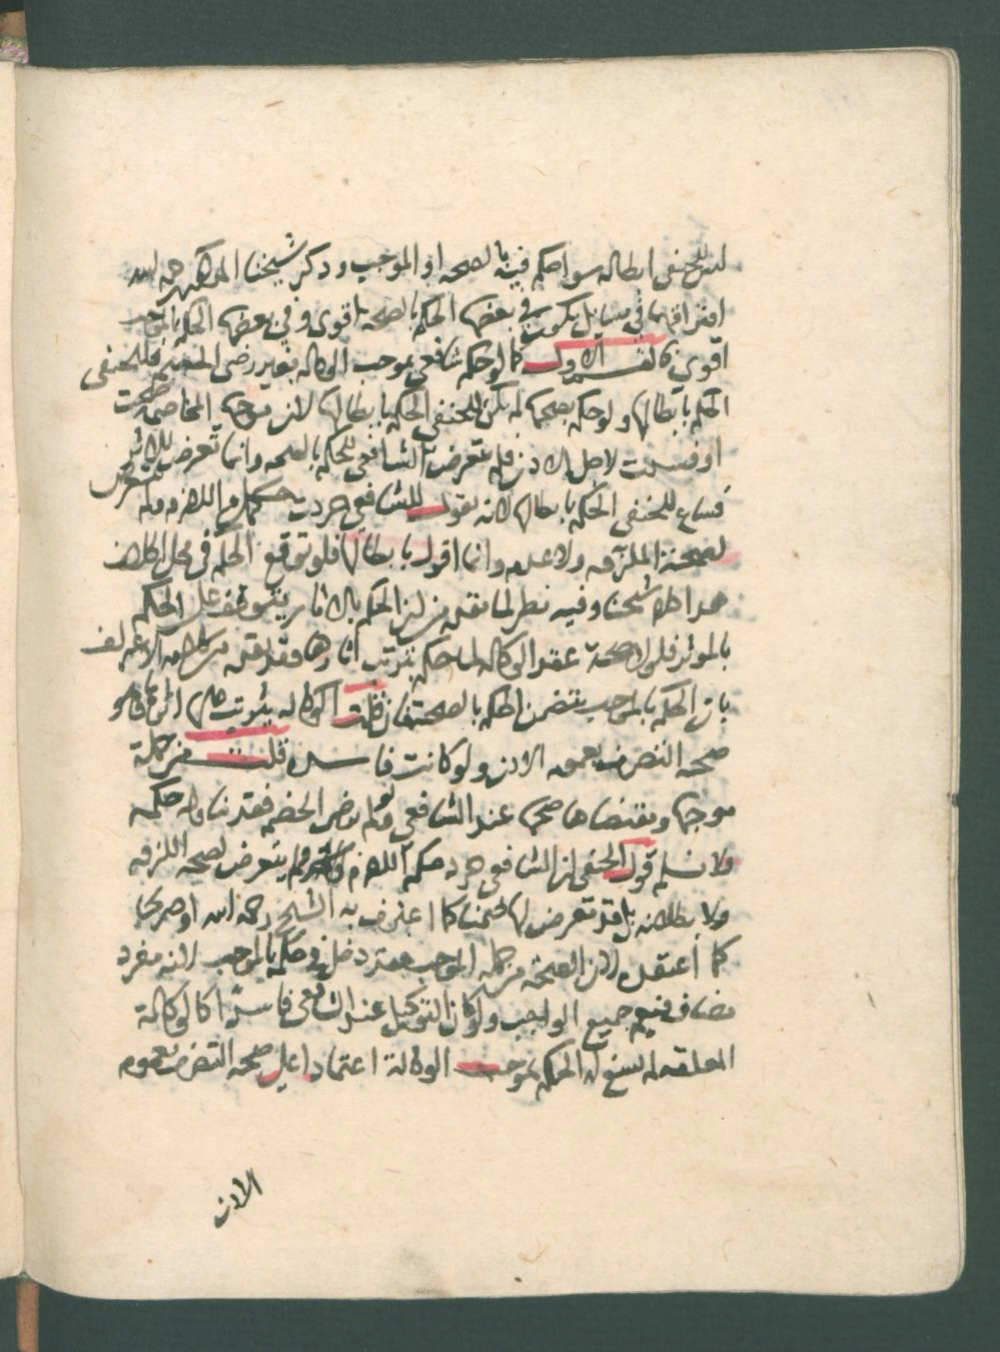 للحنفي ابطاله سوا حكم فيه بالصحه او الموجب وذكر شيخنا المذكور رحمه الله
افتراقهما في مسايل يكون في بعضها الحكم بالصحه اقوى وفي بعضها الحكم بالموجب
اقوى فالقسم الاول كما لو حكم شافعي بموجب الوكاله بغير رضى الخصم فللحنفي
الحكم بابطالها ولو حكم بصحتها لم يكن للحنفي الحكم بابطالها لان موجبها المخاصمه صحت
او فسدت لاجل الاذن فلم يتعرض الشافعي للحكم بالصحه وانما تعرض للاثر
فساغ للحنفي الحكم بابطالها لانه يقول للشافعي جردت حكمك اللازم ولم تتعرض
لصحة الملزوم ولا عدمه وانما اقول بابطالها فلو توقع الحكم في محل الخلاف
هذا كلام شيخنا وفيه نظر لما تقدم من ان الحكم بالاثار يتوقف على الحكم
بالموثر فلولا صحة عقد الوكاله لما حكم بترتب اثارها وقد تقدم من كلامه الاعتراف
بان الحكم بالموجب يتضمن الحكم بالصحة فان قلت الوكاله يثبوت هي الموجب
صحه التصرف بعموم الاذن ولو كانت فاسده قلت من جملة
موجبها ومقتضاها صحتها عند الشافعي ولو لم يرض الخصم فقد تناوله حكمه
ولا نسلم قول الحنفي ان الشافعي جرد حكم اللازم ولم يتعرض لصحه اللزوم
ولا بطلانه بل قد تعرض لها ضمنا كما اعترف به الشيخ رحمه الله او صريحا
كما اعتقد لان الصحة من جمله الموجب فقد دخل في حكم بالموجب لانه مفرد
مضاف فيعم جميع الواجب ولو كان التوكيل عند الشافعي فاسدا كالوكالة
المعلقه لم يسغ له الحكم بموجب الوكالة اعتمادا على صحه التصرف بعموم
الاذن